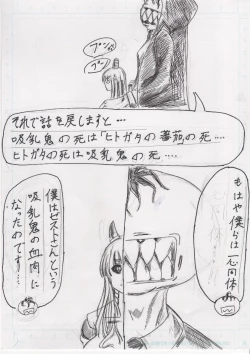 プンプン
プンプン
それで話を戻しますと・・・・
吸乳鬼の死は「ヒトガタの蕃茄の死・・・・
ヒトガタの死は吸乳鬼の死・・・・
もはや僕らは
心同体
僕はゼストよんという
吸乳鬼の血肉に
なったのです・・・